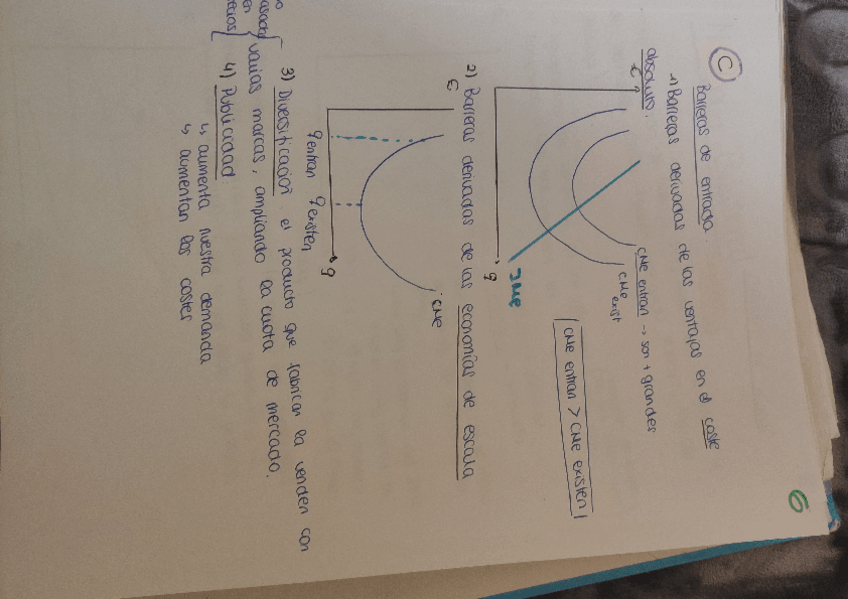 6
C
Barreras de entrada.
1) Barreras derivadas de las ventajas en el coste
absoluto.
€
CMe entran → son + grandes
CMe
exist
IMe
q
CMe entran > CMe existen
2) Barreras derivadas de las economías de escala
€
CMe
q
q entran q existen
3) Diversificación el producto que fabrican la venden con
varias marcas, ampliando la cuota de mercado.
4) Publicidad
↳ aumenta nuestra demanda
↳ aumentan los costes